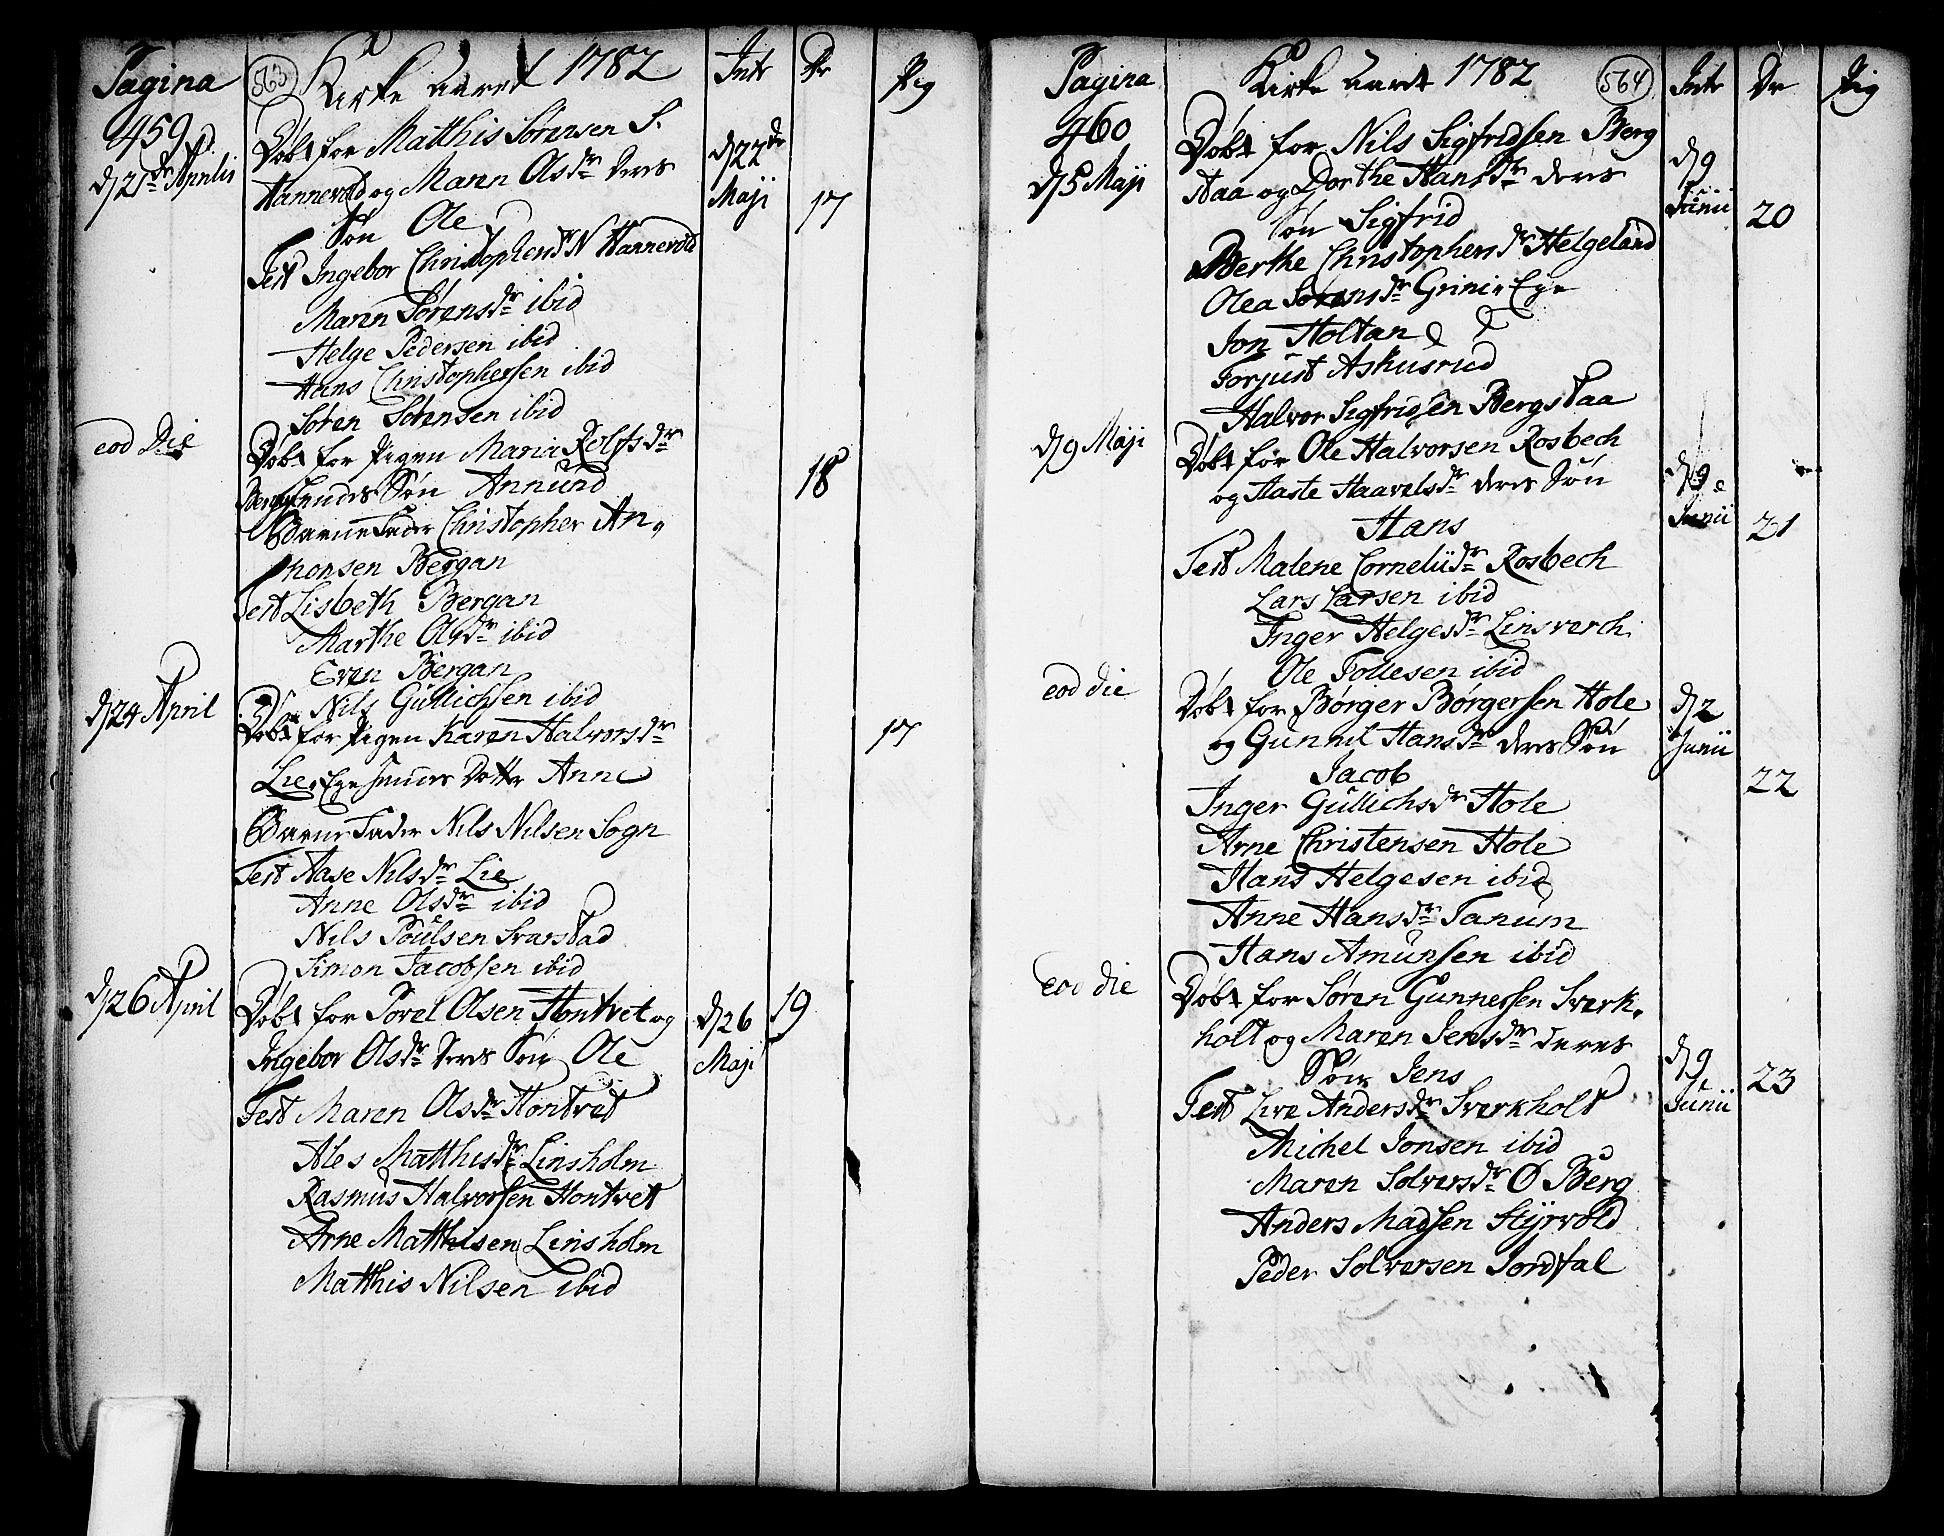 Pagina 563 Kirke Aaret 1782 Intr Dr Pig
459
d 21de Aprilis
Døbt for Matthis Sørensen S.
Hannevold og Maren Olsdr deres
Søn Ole
d 22de Maji
17
Test Ingebor Christophersdr N Hannevold
Maren Sørensdr ibid
Helge Pedersen ibid
Hans Christophersen ibid
Søren Sørensen ibid
eod Die
Døbt for Pigen Maria Rolfsdr
Søn Annund
18
Barne Fader Christopher An„
thonsen Bergan
Test Lisbeth Bergan
Marthe Olsdr ibid
Even Bergan
Nils Gullichsen ibid
d 24 April
Døbt for Pigen Karen Halvorsdr
Lie Eye hendes Dotter Anne
17
Barne Fader Nils Nilsen Sogn
Test Aase Nilsdr Lie
Anne Olsdr ibid
Nils Poulsen Svarstad
Simon Jacobsen ibid
d 26 April
Døbt for Sørel Olsen Hontvet og
Ingebor Olsdr deres Søn Ole
d 26 Maji
19
Test Maren Olsdr Hontvet
Ales Matthisdr Linsholm
Rasmus Halvorsen Hontvet
Arne Matthisen Linsholm
Matthis Nilsen ibid
Pagina Kirke Aaret 1782 564 Intr Dr Pig
460
d 5 Maji
Døbt for Nils Sigfridsen Berg
staa og Dorthe Hansdr deres
Søn Sigfrid
d 9 Junii
20
Berthe Christophersdr Helgeland
Olea Sørensdr Grini Eye
Jon Holtan
Torjust Askusrud
Halvor Sigfridsen Bergstaa
d 9 Maji
Døbt for Ole Halvorsen Rosbech
og Aaste Haavelsdr deres Søn
Hans
d 9 Junii
21
Test Malene Corneliidr Rosbech
Lars Larsen ibid
Inger Helgesdr Linsverch
Ole Follesen ibid
eod die
Døbt for Børger Børgersen Hole
og Gunnil Hansdr deres Søn
Jacob
d 2 Junii
22
Inger Gullichsdr Hole
Arne Christensen Hole
Hans Helgesen ibid
Anne Hansdr Tanum
Hans Amunsen ibid
eod die
Døbt for Søren Gunnersen Sverk„
holt og Maren Jensdr deres
Søn Jens
d 9 Junii
23
Test Live Andersdr Sverkholt
Michel Jonsen ibid
Maren Solversdr Ø Berg
Anders Madsen Styrvold
Peder Solversen Jordfal